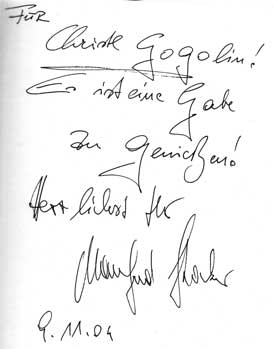 Für
Christl Gogolin!
Es ist eine Gabe
zu Genießen!
Herzlichst Ihr
Manfred
9.11.04